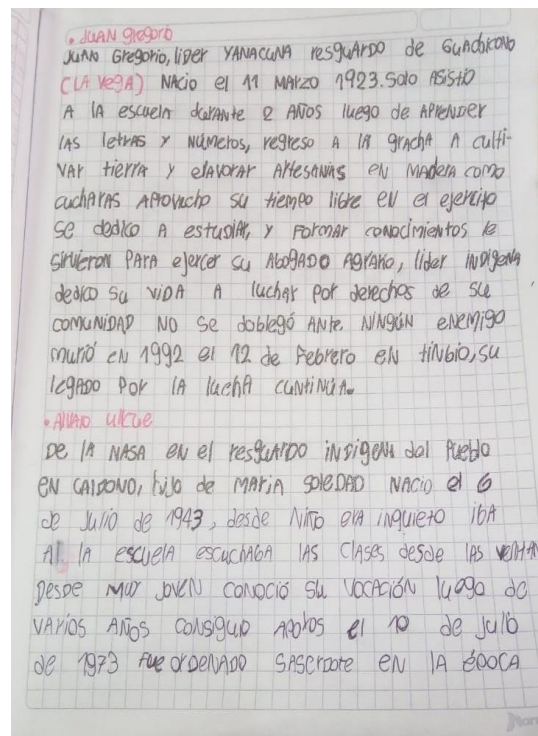 • JUAN gregorio
JUAN Gregorio, liDer YANACUNA resguArDo de GUACHICONO
(LA VegA) NAcio el 11 MArzo 1923. Solo ASistio
A lA escuelA durante 2 AÑos luego de APreNDer
lAS letrAS y Números, regreso A lA grachA A culti-
VAr tierrA y elAvorAr ArtesANiAS eN MADerA como
cucharAS AProvucho su tiempo libre eN el ejercito
se dedico A estuDiAr, y ForMAr coNocimieNtos le
sirvieroN PArA ejercer su AbogADO AgrArio, líder iNDigeNA
dedico Su viDA A luchAr por derechos de su
comuNiDAD NO se doblegó ANte NiNgúN eNemigo
murió eN 1992 el 12 de Febrero eN tiNbio, su
legADO Por lA luchA cuNtiNúA.
• AlvAro ulcue
De lA NASA eN el resguArDo iNDigeNA del Pueblo
EN CALDONO, hijo de MAriA SoleDAD NAcio el 6
de Julio de 1943, desde Niño erA iNquieto ibA
Al lA escuelA escuchAbA lAS clAses desde lAS veNtAN
Desde muy joveN coNoció su vocAcióN luego de
vArios AÑos coNsiguio APoyos el 10 de Julio
de 1973 Fue orDeNADO SAserDote eN lA éPocA
Nor